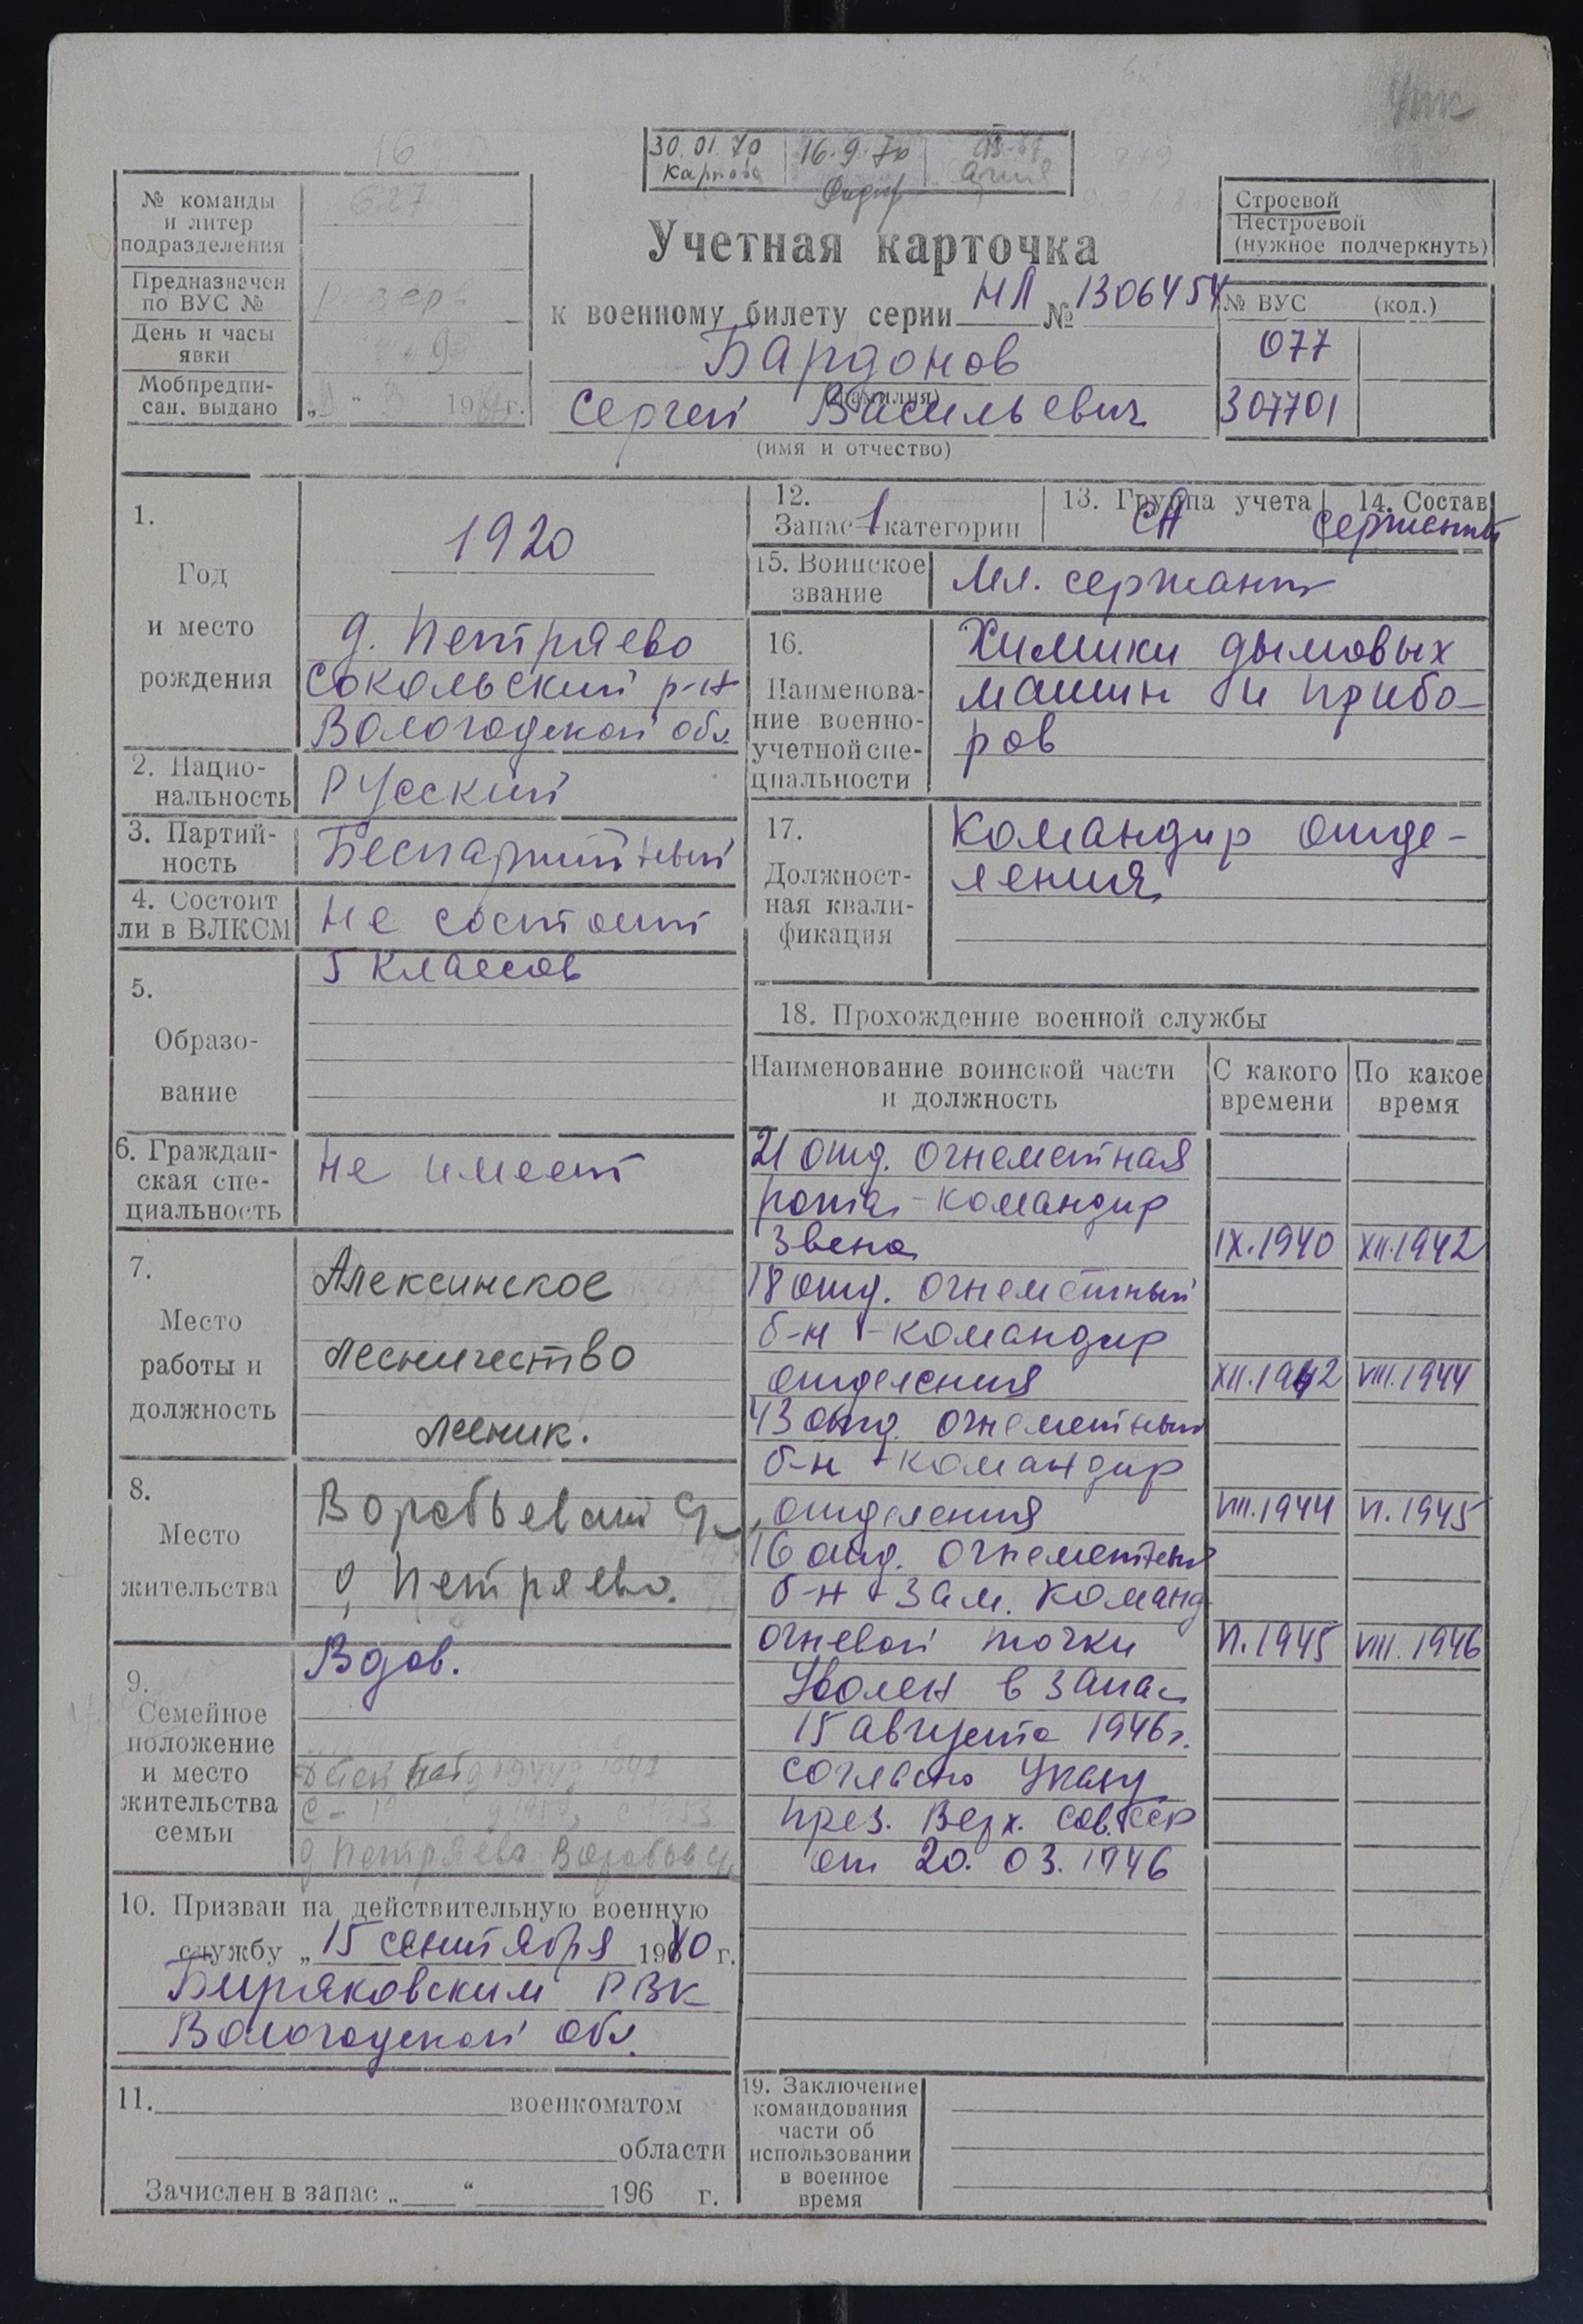 30.01.70
Карпова
16.9.70
№ команды
и литер
подразделения
627
Предназначен
по ВУС №
резерв
День и часы
явки
Мобпредпи-
сан. выдано
„ “ 3 19 г.
Учетная карточка
к военному билету серии НЛ № 1306454
Бардонов
(фамилия)
Сергей Васильевич
(имя и отчество)
Строевой
Нестроевой
(нужное подчеркнуть)
№ ВУС (код.)
077
307701
1.
Год
и место
рождения
1920
д. Петряево
Сокольский р-н
Вологодской обл.
2. Нацио-
нальность
Русский
3. Партий-
ность
Беспартийный
4. Состоит
ли в ВЛКСМ
Не состоит
5.
Образо-
вание
5 классов
6. Граждан-
ская спе-
циальность
Не имеет
7.
Место
работы и
должность
Алексинское
лесничество
лесник.
8.
Место
жительства
Воробьевский
д. Петряево.
9.
Семейное
положение
и место
жительства
семьи
Вдов.
д Петряево
10. Призван на действительную военную
службу „ 15 сентября 1940 г.
Биряковским РВК
Вологодской обл.
11. военкоматом
области
Зачислен в запас „ “ 196 г.
12.
Запас 1 категории
13. Группа учета
СА
14. Состав
Сержанты
15. Воинское
звание
Мл. сержант
16.
Наименова-
ние военно-
учетной спе-
циальности
Химики дымовых
машин и прибо-
ров
17.
Должност-
ная квали-
фикация
Командир отде-
ления
18. Прохождение военной службы
Наименование воинской части
и должность
С какого
времени
По какое
время
21 отд. огнеметная
рота - командир
звена IX.1940 XII.1942
18 отд. огнеметный
б-н - командир
отделения XII.1942 VIII.1944
43 отд. огнеметный
б-н - командир
отделения VIII.1944 VI.1945
16 отд. огнеметный
б-н - зам. команд
огневой точки VI.1945 VIII.1946
Уволен в запас
15 августа 1946г.
согласно Указу
През. Верх. Сов. ССР
от 20.03.1946
19. Заключение
командования
части об
использовании
в военное
время